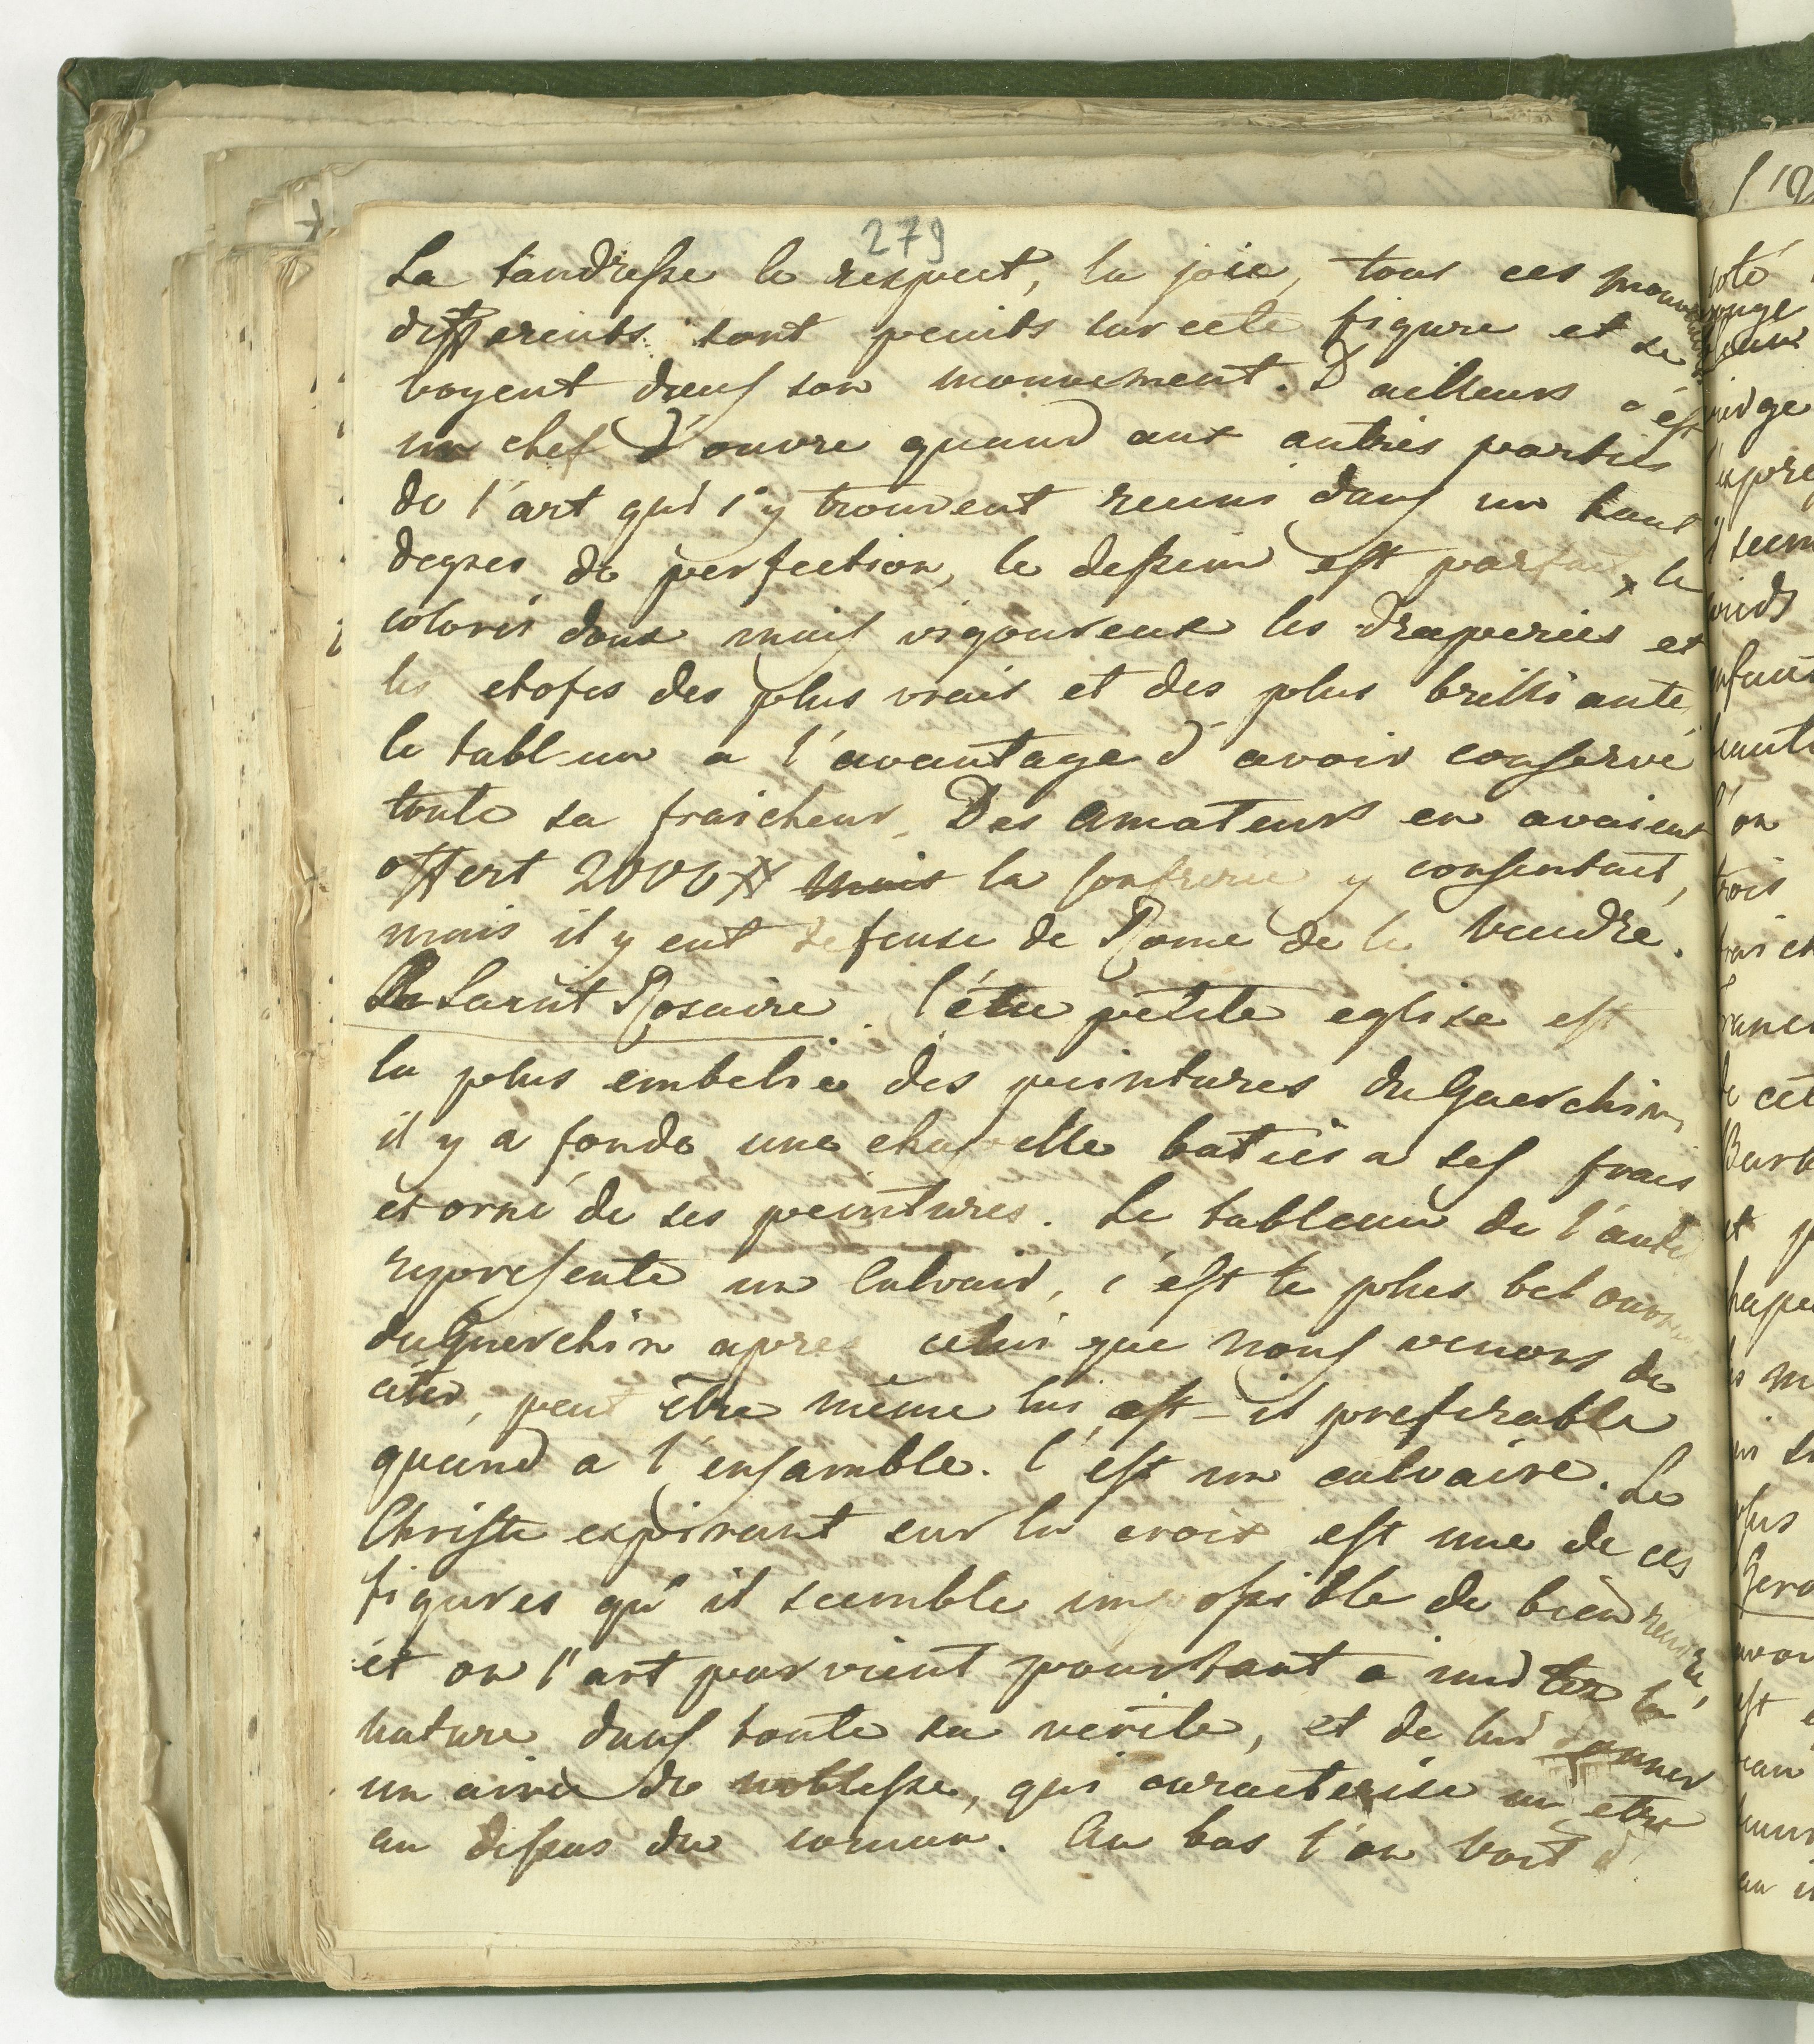 279
La tandresse le respect, la joie, tous ces mouvements
differents sont peints sur cete figure et se
voyent dans son mouvement. D'ailleurs c'est
un chef d'ouvre quand aux autres parties
de l'art qui s'y trouvent reunis dans un haut
degres de perfection, le dessein est parfait, le
coloris doux mais vigoureux les draperies et
les etofes des plus vrais et des plus brilliante
le tableau a l'avantage d'avoir conservé
toute sa fraicheur. Des amateurs en avaient
offert 2000 # mais la confrerie y consentait,
mais il y eut defense de Rome de le vendre.
Le Saint Rosaire. Cétte petite eglise est
la plus embelie des peintures du Guerchin,
il y a fonde une chapelle baties a ses frais
et orné de ses peintures. Le tableau de l'autel
represente un Calvair, c'est le plus bel ouvrage
du Guerchin apres celui que nous venons de
citer, peut être même lui est-il preferable
quand a l'ensamble. C'est un calvaire. Le
Christe expirant sur la croix est une de ces
figures qu'il seemble impossible de bien rendre,
et ou l'art parvient pourtant a imiter la
nature dans toute sa verite, et de lui donner
un aire de noblesse, qui caracterise un etre
au dessus du comun. Au bas l'on voit
côté
rouge
vierge
trois